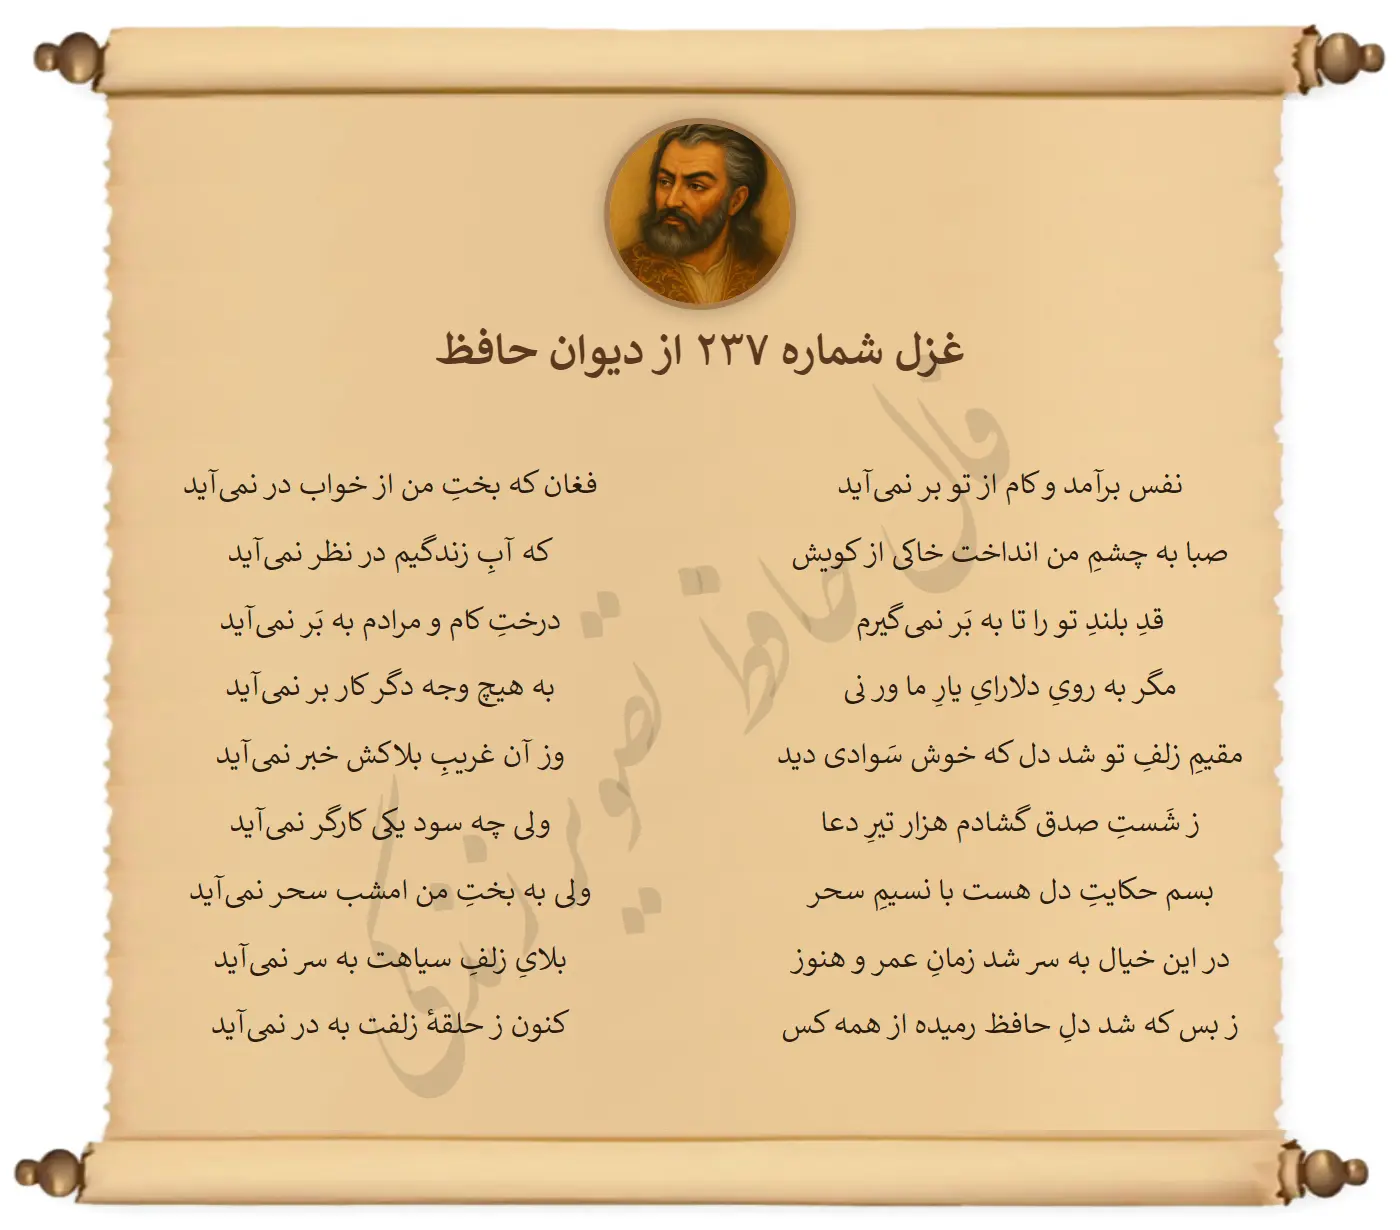 غزل شماره ۲۳۷ از دیوان حافظ
نفس برآمد و کام از تو بر نمی‌آید
فغان که بختِ من از خواب در نمی‌آید
صبا به چشمِ من انداخت خاکی از کویش
که آبِ زندگیم در نظر نمی‌آید
قدِ بلندِ تو را تا به بَر نمی‌گیرم
درختِ کام و مرادم به بَر نمی‌آید
مگر به رویِ دلارایِ یارِ ما ور نی
به هیچ وجه دگر کار بر نمی‌آید
مقیمِ زلفِ تو شد دل که خوش سَوادی دید
وز آن غریبِ بلاکش خبر نمی‌آید
ز شَستِ صدق گشادم هزار تیرِ دعا
ولی چه سود یکی کارگر نمی‌آید
بسم حکایتِ دل هست با نسیمِ سحر
ولی به بختِ من امشب سحر نمی‌آید
در این خیال به سر شد زمانِ عمر و هنوز
بلایِ زلفِ سیاهت به سر نمی‌آید
ز بس که شد دلِ حافظ رمیده از همه کس
کنون ز حلقهٔ زلفت به در نمی‌آید
فال حافظ تصویر زندگی